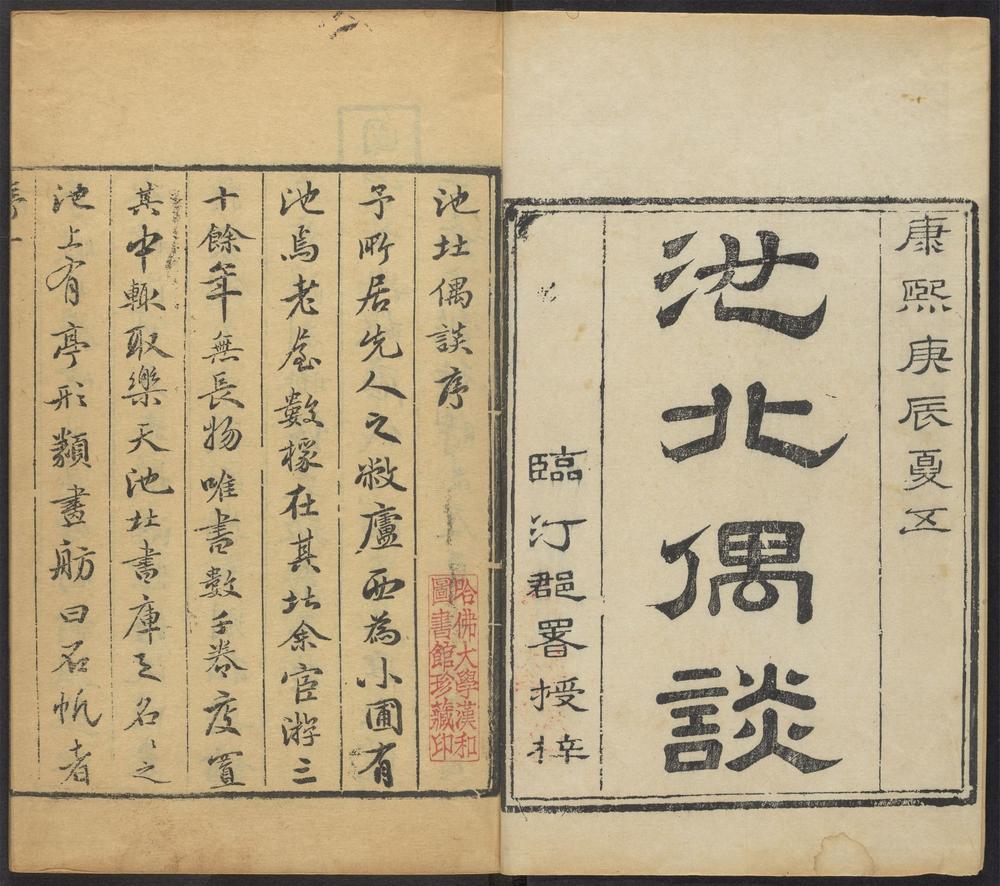 康熙庚辰夏五
池北偶談
臨汀郡署授梓
池北偶談序
予所居先人之敝廬西為小圃有
池焉老屋數椽在其北余宦游三
十餘年無長物唯書數千卷庋置
其中輙取樂天池北書庫之名名之
池上有亭形類畫舫曰石帆者
哈佛大學漢和
圖書館珍藏印